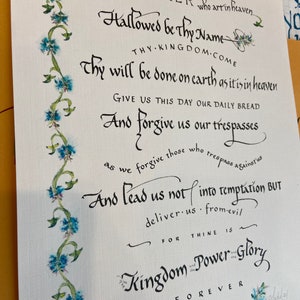 who art in heaven
Hallowed be thy Name
THY·KINGDOM·COME
Thy will be done on earth as it is in heaven
GIVE US THIS DAY OUR DAILY BREAD
And forgive us our trespasses
as we forgive those who trespass against us
And lead us not into temptation BUT
deliver·us·from·evil
FOR THINE IS
Kingdom Power Glory
FOREVER